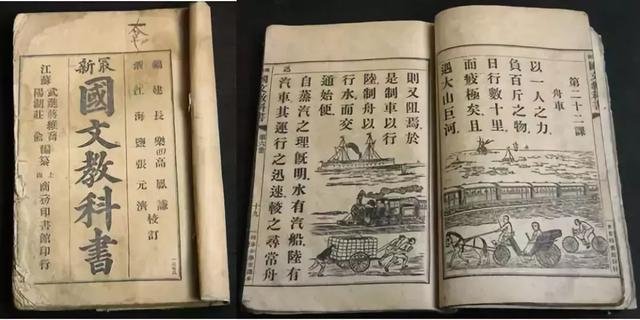 最新
國文教科書
福建長樂高鳳謙
浙江海鹽張元濟
校訂
江蘇
武進蔣維喬
陽湖莊俞
編纂
上海商務印書館印行
第二十二課
舟車
以一人之力
負百斤之物
日行數十里
而疲極矣且
遇大山巨河
則又阻焉於
是制車以行
陸制舟以
行水而交
通始便
自蒸汽之理既明水有汽船陸有
汽車其運行之迅速較之尋常舟
國文教科書
十九